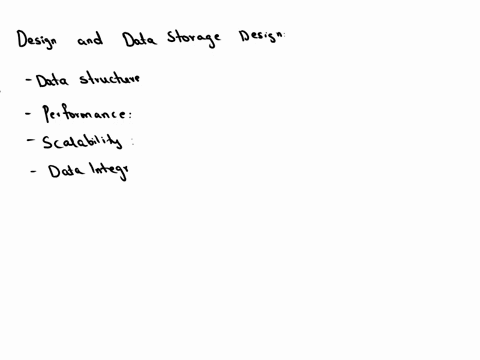 Design and Data Storage Design:
- Data structure
- Performance:
- Scalability :
- Data Integr